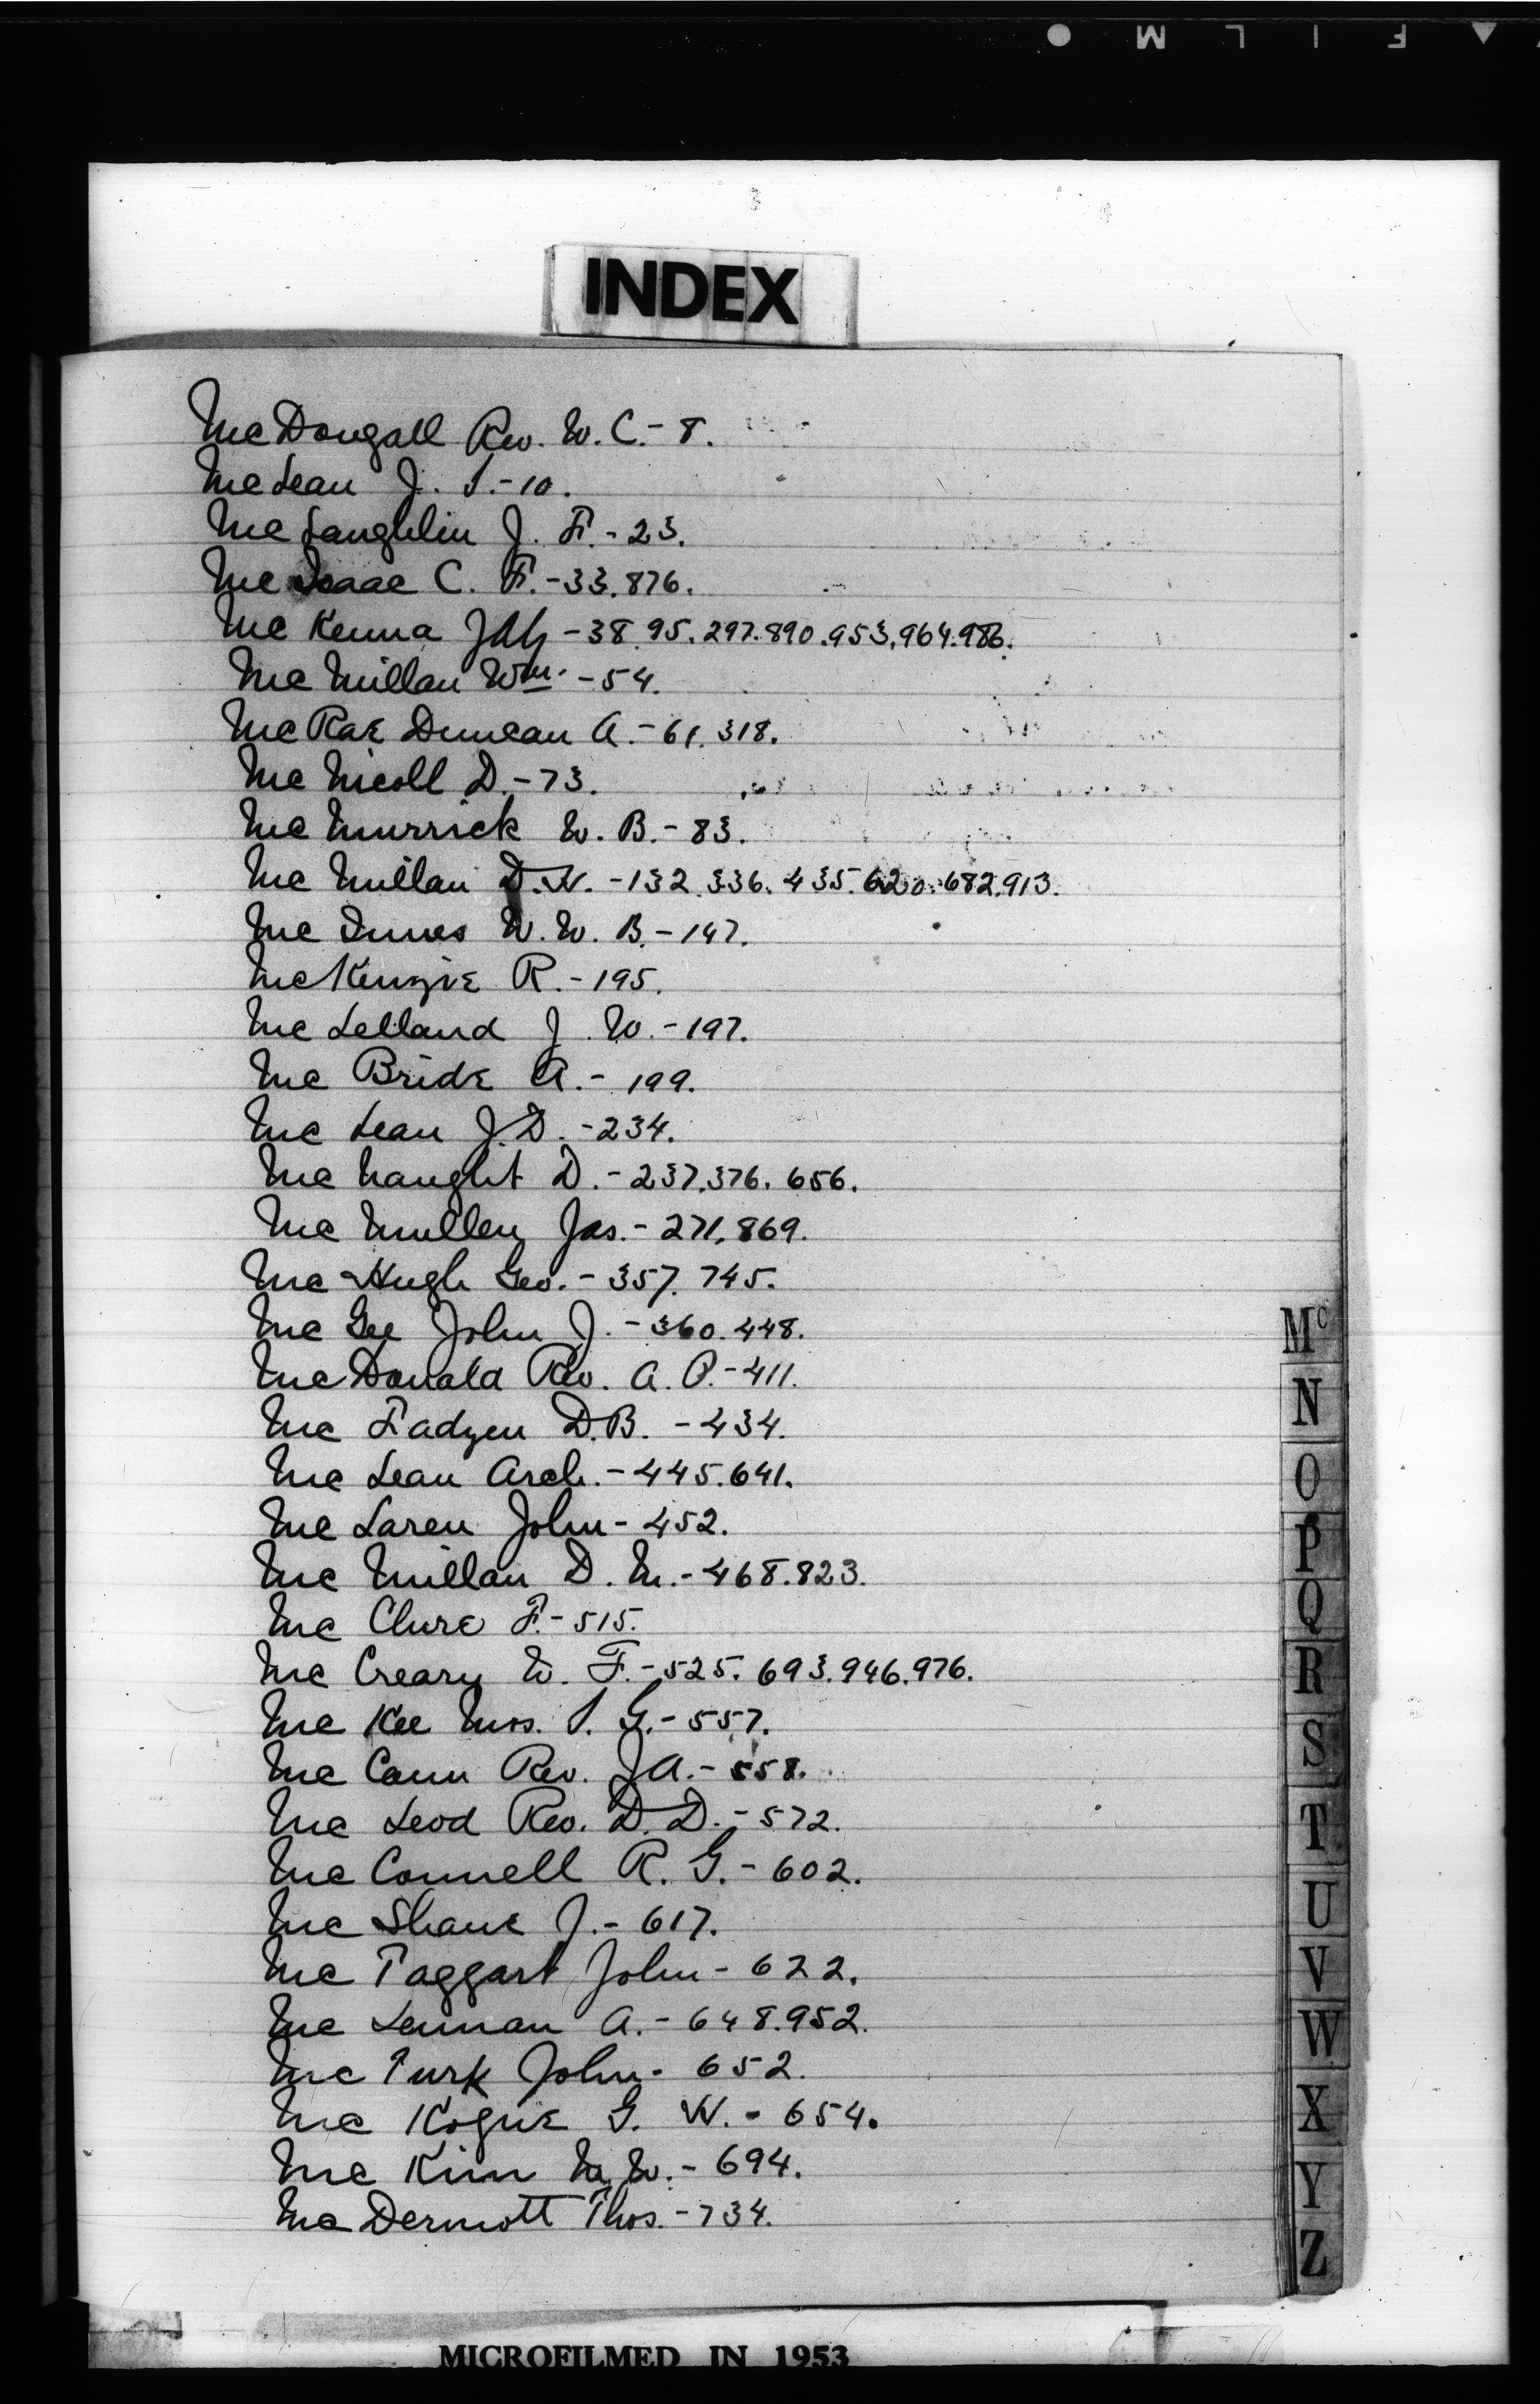 FILM
INDEX
McDougall Rev. W. C. - 8.
McLean J. S. - 10.
McLaughlin J. F. - 23.
McIsaac C. F. - 33. 876.
McKenna JAJ - 38. 95. 297. 890. 953. 964. 986.
McMillan Wm. - 54.
McRae Duncan A. - 61. 318.
McNicoll D. - 73.
McMurrick W. B. - 83.
McMillan D. H. - 132. 336. 435. 620. 682. 913.
McInnes W. W. B. - 147.
McKenzie R. - 195.
McLelland J. W. - 197.
McBride A. - 199.
McLean J. D. - 234.
McNaught D. - 237. 376. 656.
McMullen Jas. - 271. 869.
McHugh Geo. - 357. 745.
McGee John J. - 360. 448.
McDonald Rev. A. P. - 411.
McFadyen D. B. - 434.
McLean Arch. - 445. 641.
McLaren John - 452.
McMillan D. M. - 468. 823.
McClure F. - 515.
McCreary W. F. - 525. 693. 946. 976.
McKee Mrs. S. G. - 557.
McCann Rev. J A. - 558.
McLeod Rev. D. D. - 572.
McConnell R. G. - 602.
McShane J. - 617.
McTaggart John - 622.
McLennan A. - 648. 952.
McTurk John - 652.
McKogue G. W. - 654.
McKim W. - 694.
McDermott Thos. - 734.
Mc
N
O
P
Q
R
S
T
U
V
W
X
Y
Z
MICROFILMED IN 1953